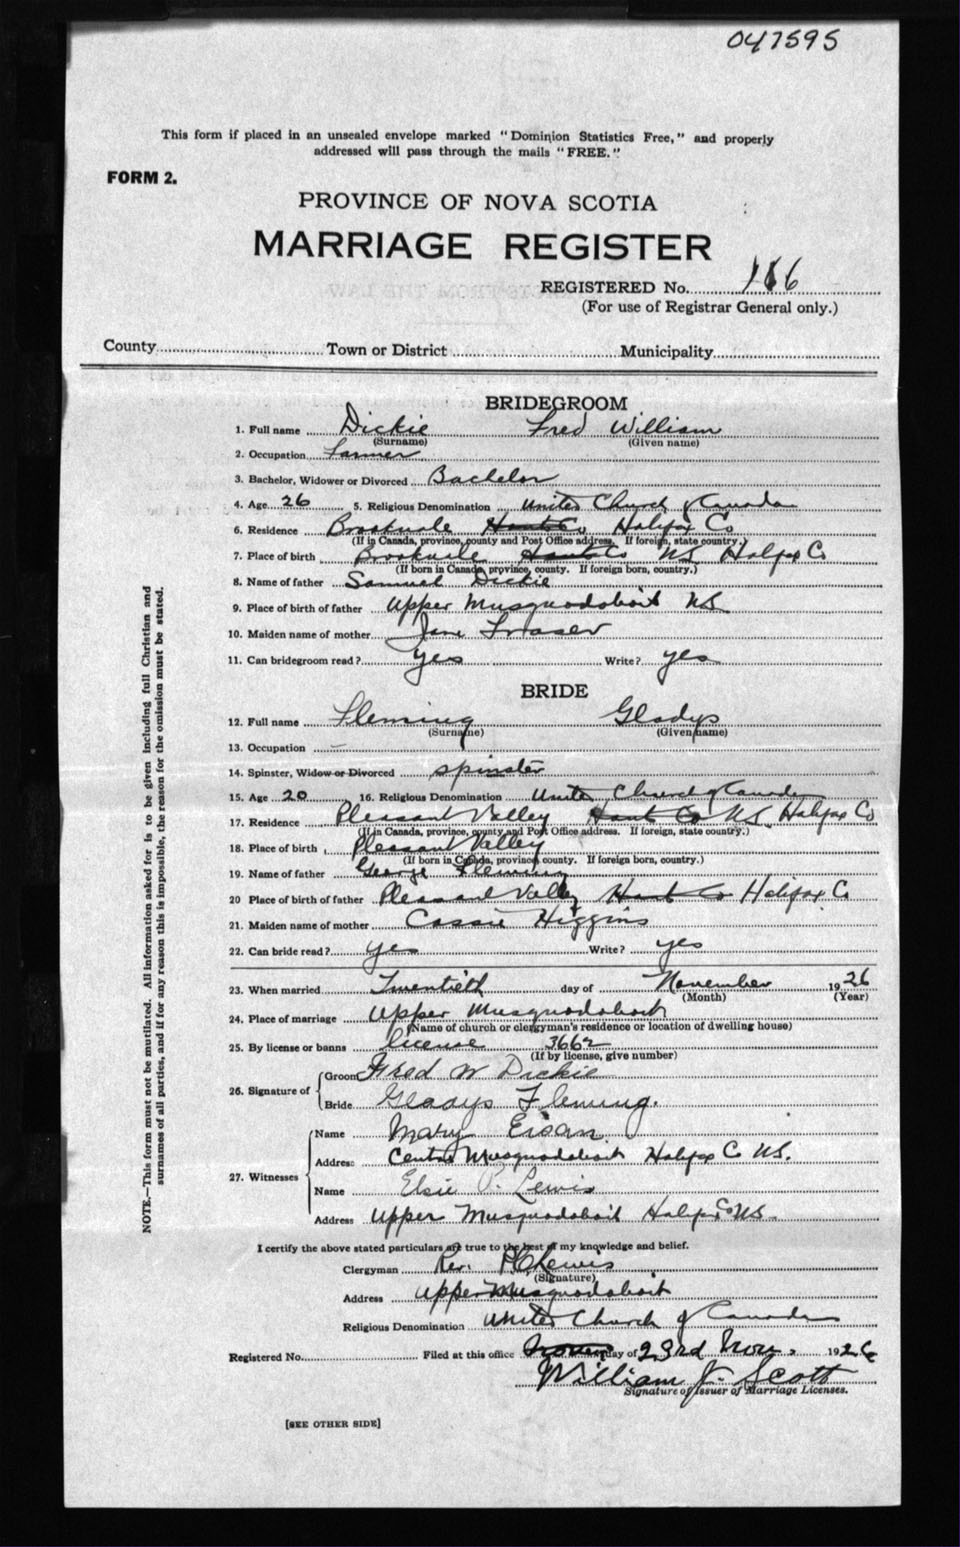 047595
This form if placed in an unsealed envelope marked "Dominion Statistics Free," and properly
addressed will pass through the mails "FREE."
FORM 2.
PROVINCE OF NOVA SCOTIA
MARRIAGE REGISTER
REGISTERED No. 166
(For use of Registrar General only.)
County Town or District Municipality
BRIDEGROOM
1. Full name Dickie Fred William
(Surname) (Given name)
2. Occupation Farmer
3. Bachelor, Widower or Divorced Bachelor
4. Age 26 5. Religious Denomination United Church of Canada
6. Residence Brookvale Hants Co Halifax Co
(If in Canada, province, county and Post Office address. If foreign, state country.)
7. Place of birth Brookvale Hants Co NS Halifax Co
(If born in Canada, province, county. If foreign born, country.)
8. Name of father Samuel Dickie
9. Place of birth of father Upper Musquodoboit NS
10. Maiden name of mother Jane Fraser
11. Can bridegroom read? yes Write? yes
BRIDE
12. Full name Fleming Gladys
(Surname) (Given name)
13. Occupation –
14. Spinster, Widow or Divorced spinster
15. Age 20 16. Religious Denomination United Church of Canada
17. Residence Pleasant Valley Hants Co NS Halifax Co
(If in Canada, province, county and Post Office address. If foreign, state country.)
18. Place of birth Pleasant Valley
(If born in Canada, province county. If foreign born, country.)
19. Name of father George Fleming
20 Place of birth of father Pleasant Valley Hants Co Halifax Co
21. Maiden name of mother Cassie Higgins
22. Can bride read? yes Write? yes
23. When married Twentieth day of November 1926
(Month) (Year)
24. Place of marriage Upper Musquodoboit
(Name of church or clergyman's residence or location of dwelling house)
25. By license or banns license 3662
(If by license, give number)
26. Signature of Groom Fred W Dickie
Bride Gladys Fleming.
27. Witnesses
Name Mary Eisan
Address Centre Musquodoboit Halifax Co NS.
Name Elsie P. Lewis
Address Upper Musquodoboit Halifax Co NS.
I certify the above stated particulars are true to the best of my knowledge and belief.
Clergyman Rev. P C Lewis
(Signature)
Address Upper Musquodoboit
Religious Denomination United Church of Canada
Registered No. Filed at this office day of 23rd Nov. 1926
William J. Scott
Signature of Issuer of Marriage Licenses.
[SEE OTHER SIDE]
NOTE.—This form must not be mutilated. All information asked for is to be given including full Christian and
surnames of all parties, and if for any reason this is impossible, the reason for the omission must be stated.